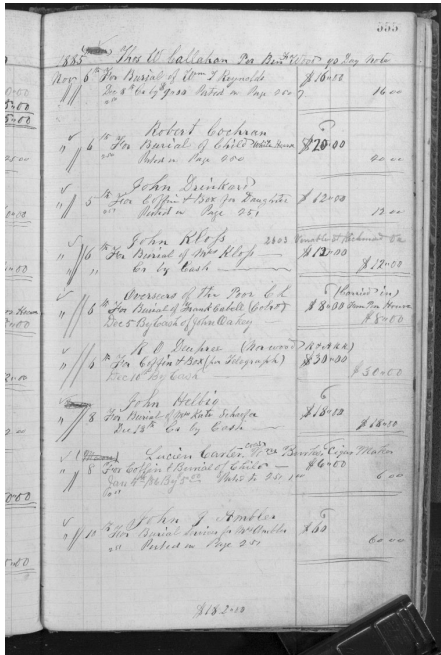 555
1885 Thos W. Callahan Per Benj 90 Day Note
Nov 6th For Burial of Wm T Reynolds $16.00
Dec 8th Cr By Posted on Page 250 16 00
Robert Cochran
" 6 th For Burial of Child White House $20.00
Posted on Page 250 20 00
John Drinkard
" 5 th For Coffin & Box for Daughter $12.00
Posted on Page 251 12 00
John Kloss 2803 Venable St Richmond Va
" 6 th For Burial of Mrs Kloss $12.00
" Cr by Cash $12.00
Overseers of the Poor (Buried in)
" 6 th For Burial of Frank Cabell (Col'd) $8.00 from Poor House
Dec 5 By Cash of John Oakey $8.00
R O Dupree (Norwood
" 6 th For Coffin & Box (per Telegraph) $30.00
Dec 10th By Cash $30.00
John Helbig
" 8 For Burial of Mrs Kate $18.00
Dec 18th Cr by Cash $18.00
Lucien Carter Cigar Maker
" 8 For Coffin & Burial of Child $6.00
Jan By 5.00 Posted to 251 6 00
John J Ambler
" 10 th For Burial Services for Mrs Ambler $60
Posted on Page 251 60 00
$182.00